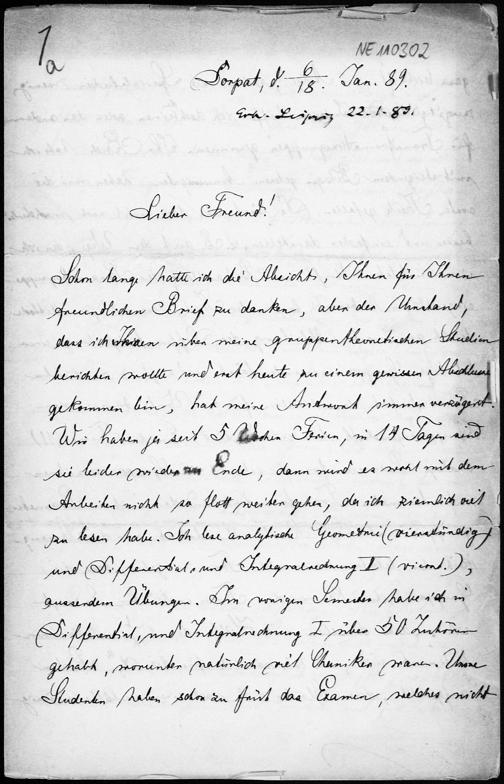 1a
NE 110302
Dorpat, d. 6/18. Jan. 89.
Erh. Leipzig 22.1.89.
Lieber Freund!
Schon lange hatte ich die Absicht, Ihnen für Ihren
freundlichen Brief zu danken, aber der Umstand,
dass ich Ihnen über meine gruppentheoretischen Studien
berichten wollte und erst heute zu einem gewissen Abschluss
gekommen bin, hat meine Antwort immer verzögert.
Wir haben ja seit 5 Wochen Ferien, in 14 Tagen sind
sie leider wieder zu Ende, dann wird es wohl mit dem
Arbeiten nicht so flott weiter gehen, da ich ziemlich viel
zu lesen habe. Ich lese analytische Geometrie (vierstündig)
und Differential- und Integralrechnung I (vierst.),
ausserdem Übungen. Im vorigen Semester habe ich in
Differential- und Integralrechnung I über 50 Zuhörer
gehabt, worunter natürlich viel Chemiker waren. Unsre
Studenten haben schon zu früh das Examen, welches nicht